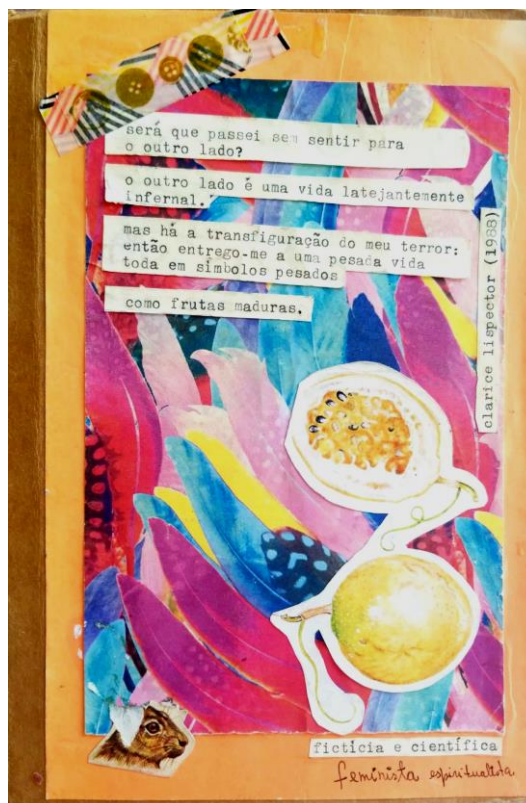 será que passei sem sentir para
o outro lado?
o outro lado é uma vida latejantemente
infernal.
mas há a transfiguração do meu terror:
então entrego-me a uma pesada vida
toda em símbolos pesados
como frutas maduras.
clarice lispector (1988)
fictícia e científica
feminista espiritualista